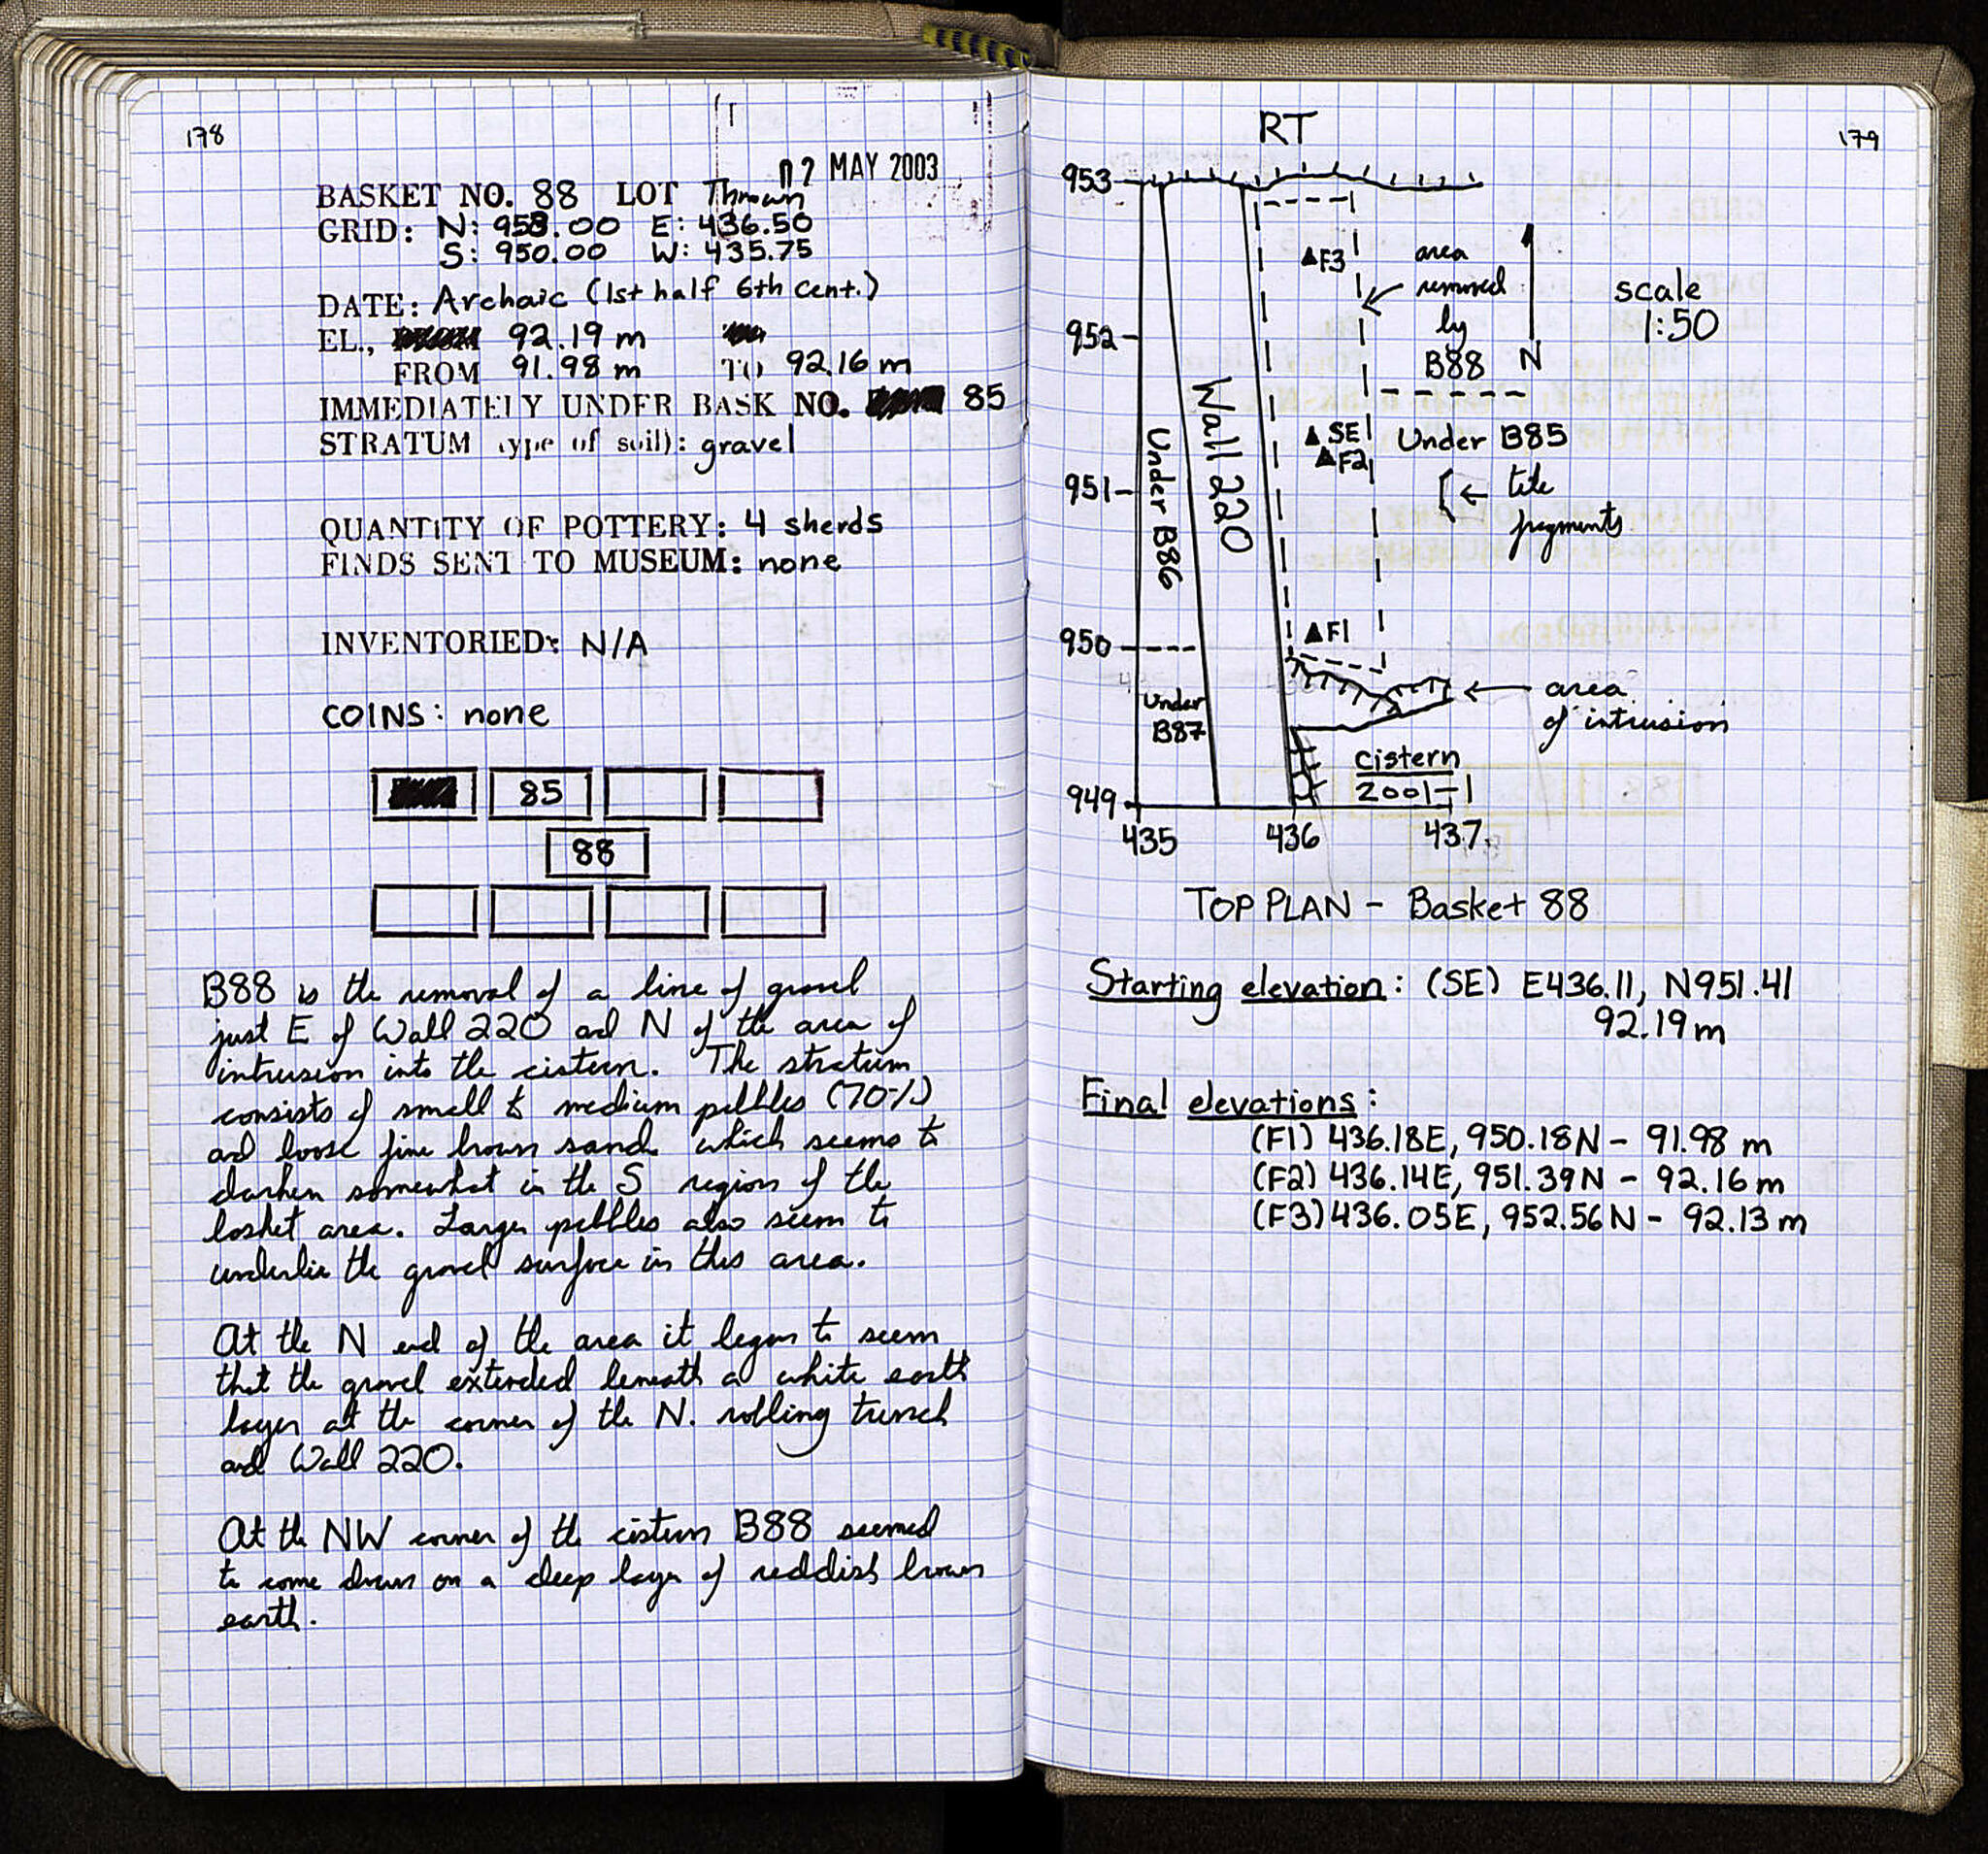 178
02 MAY 2003
BASKET NO. 88 LOT Thrown
GRID: N: 953.00 E: 436.50
S: 950.00 W: 435.75
DATE: Archaic (1st half 6th cent.)
EL., 92.19 m
FROM 91.98 m TO 92.16 m
IMMEDIATELY UNDER BASK NO. 85
STRATUM type of soil): gravel
QUANTITY OF POTTERY: 4 sherds
FINDS SENT TO MUSEUM: none
INVENTORIED: N/A
COINS: none
85
88
B88 is the removal of a line of gravel
just E of Wall 220 and N of the area of
intrusion into the cistern. The stratum
consists of small to medium pebbles (70%)
and loose fine brown sand which seems to
darken somewhat in the S region of the
basket area. Larger pebbles also seem to
underlie the gravel surface in this area.
At the N end of the area it began to seem
that the gravel extended beneath a white earth
layer at the corner of the N. robbing trench
and Wall 220.
At the NW corner of the cistern B88 seemed
to come down on a deep layer of reddish brown
earth.
179
RT
953
952
951
950
949
435
436
437
Under B86
Wall 220
Under
B87
▲F3
area
removed
by
B88
N
scale
1:50
▲SE
▲F2
Under B85
tile
fragments
▲F1
area
of intrusion
cistern
2001-1
TOP PLAN - Basket 88
Starting elevation: (SE) E436.11, N951.41
92.19 m
Final elevations:
(F1) 436.18E, 950.18N - 91.98 m
(F2) 436.14E, 951.39N - 92.16 m
(F3) 436.05E, 952.56N - 92.13 m